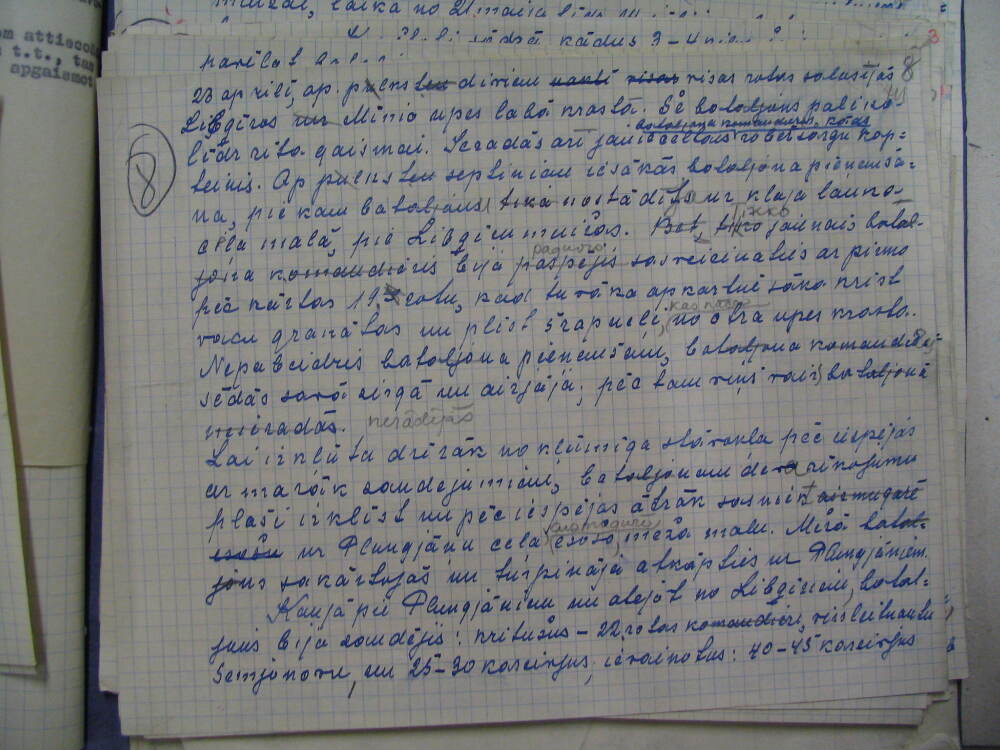 om attieco
t.t., tas
apgaismot
8
23 aprīlī, ap. pulksten diviem visas rotas salasījās
Libgiros Minia upes labā krastā. Še bataljons palika
bataljona komandieris, kāds
līdz rīta gaismai. Ieradās arī jaunieceltais robežsargu kap-
8
teinis. Ap pulksten septiņiem iesākās bataljona pieņemša-
na, pie kam bataljons tika nostādīts uz klaja lauka
ceļa malā, pie Libgiru muižas. Bet, tikko jaunais batal-
jona komandieris bija paspējis sasveicināties ar pirmo
pēc kārtas 19. rotu, kad tuvāka apkārtnē sāka krist
vācu granātas un plīst šrapneļi, no otra upes krasta.
Nepabeidzis bataljona pieņemšanu, bataljona komandieris
sēdās savā zirgā un aizjāja; pēc tam viņš vairs bataljonā
neieradās. nerādījās
Lai izkļūtu drīzāk no kļūmīga stāvokļa pēc iespējas
ar mazāk zaudējumiem, bataljonam deva rīkojumu
plaši izklīst un pēc iespējas ātrāk sasniegt aizmugurē
esošo uz Plungjānu ceļa esošo meža malu. Mežā batal-
jons sakārtojās un turpināja atkāpties uz Plungjāniem.
Kaujā pie Plungjāniem un atejot no Libgiriem, batal-
jons bija zaudējis: kritušus – 22 rotas komandieri, virsleitnantu
Semjonovu, un 25–30 kareivjus, ievainotus: 40–45 kareivjus